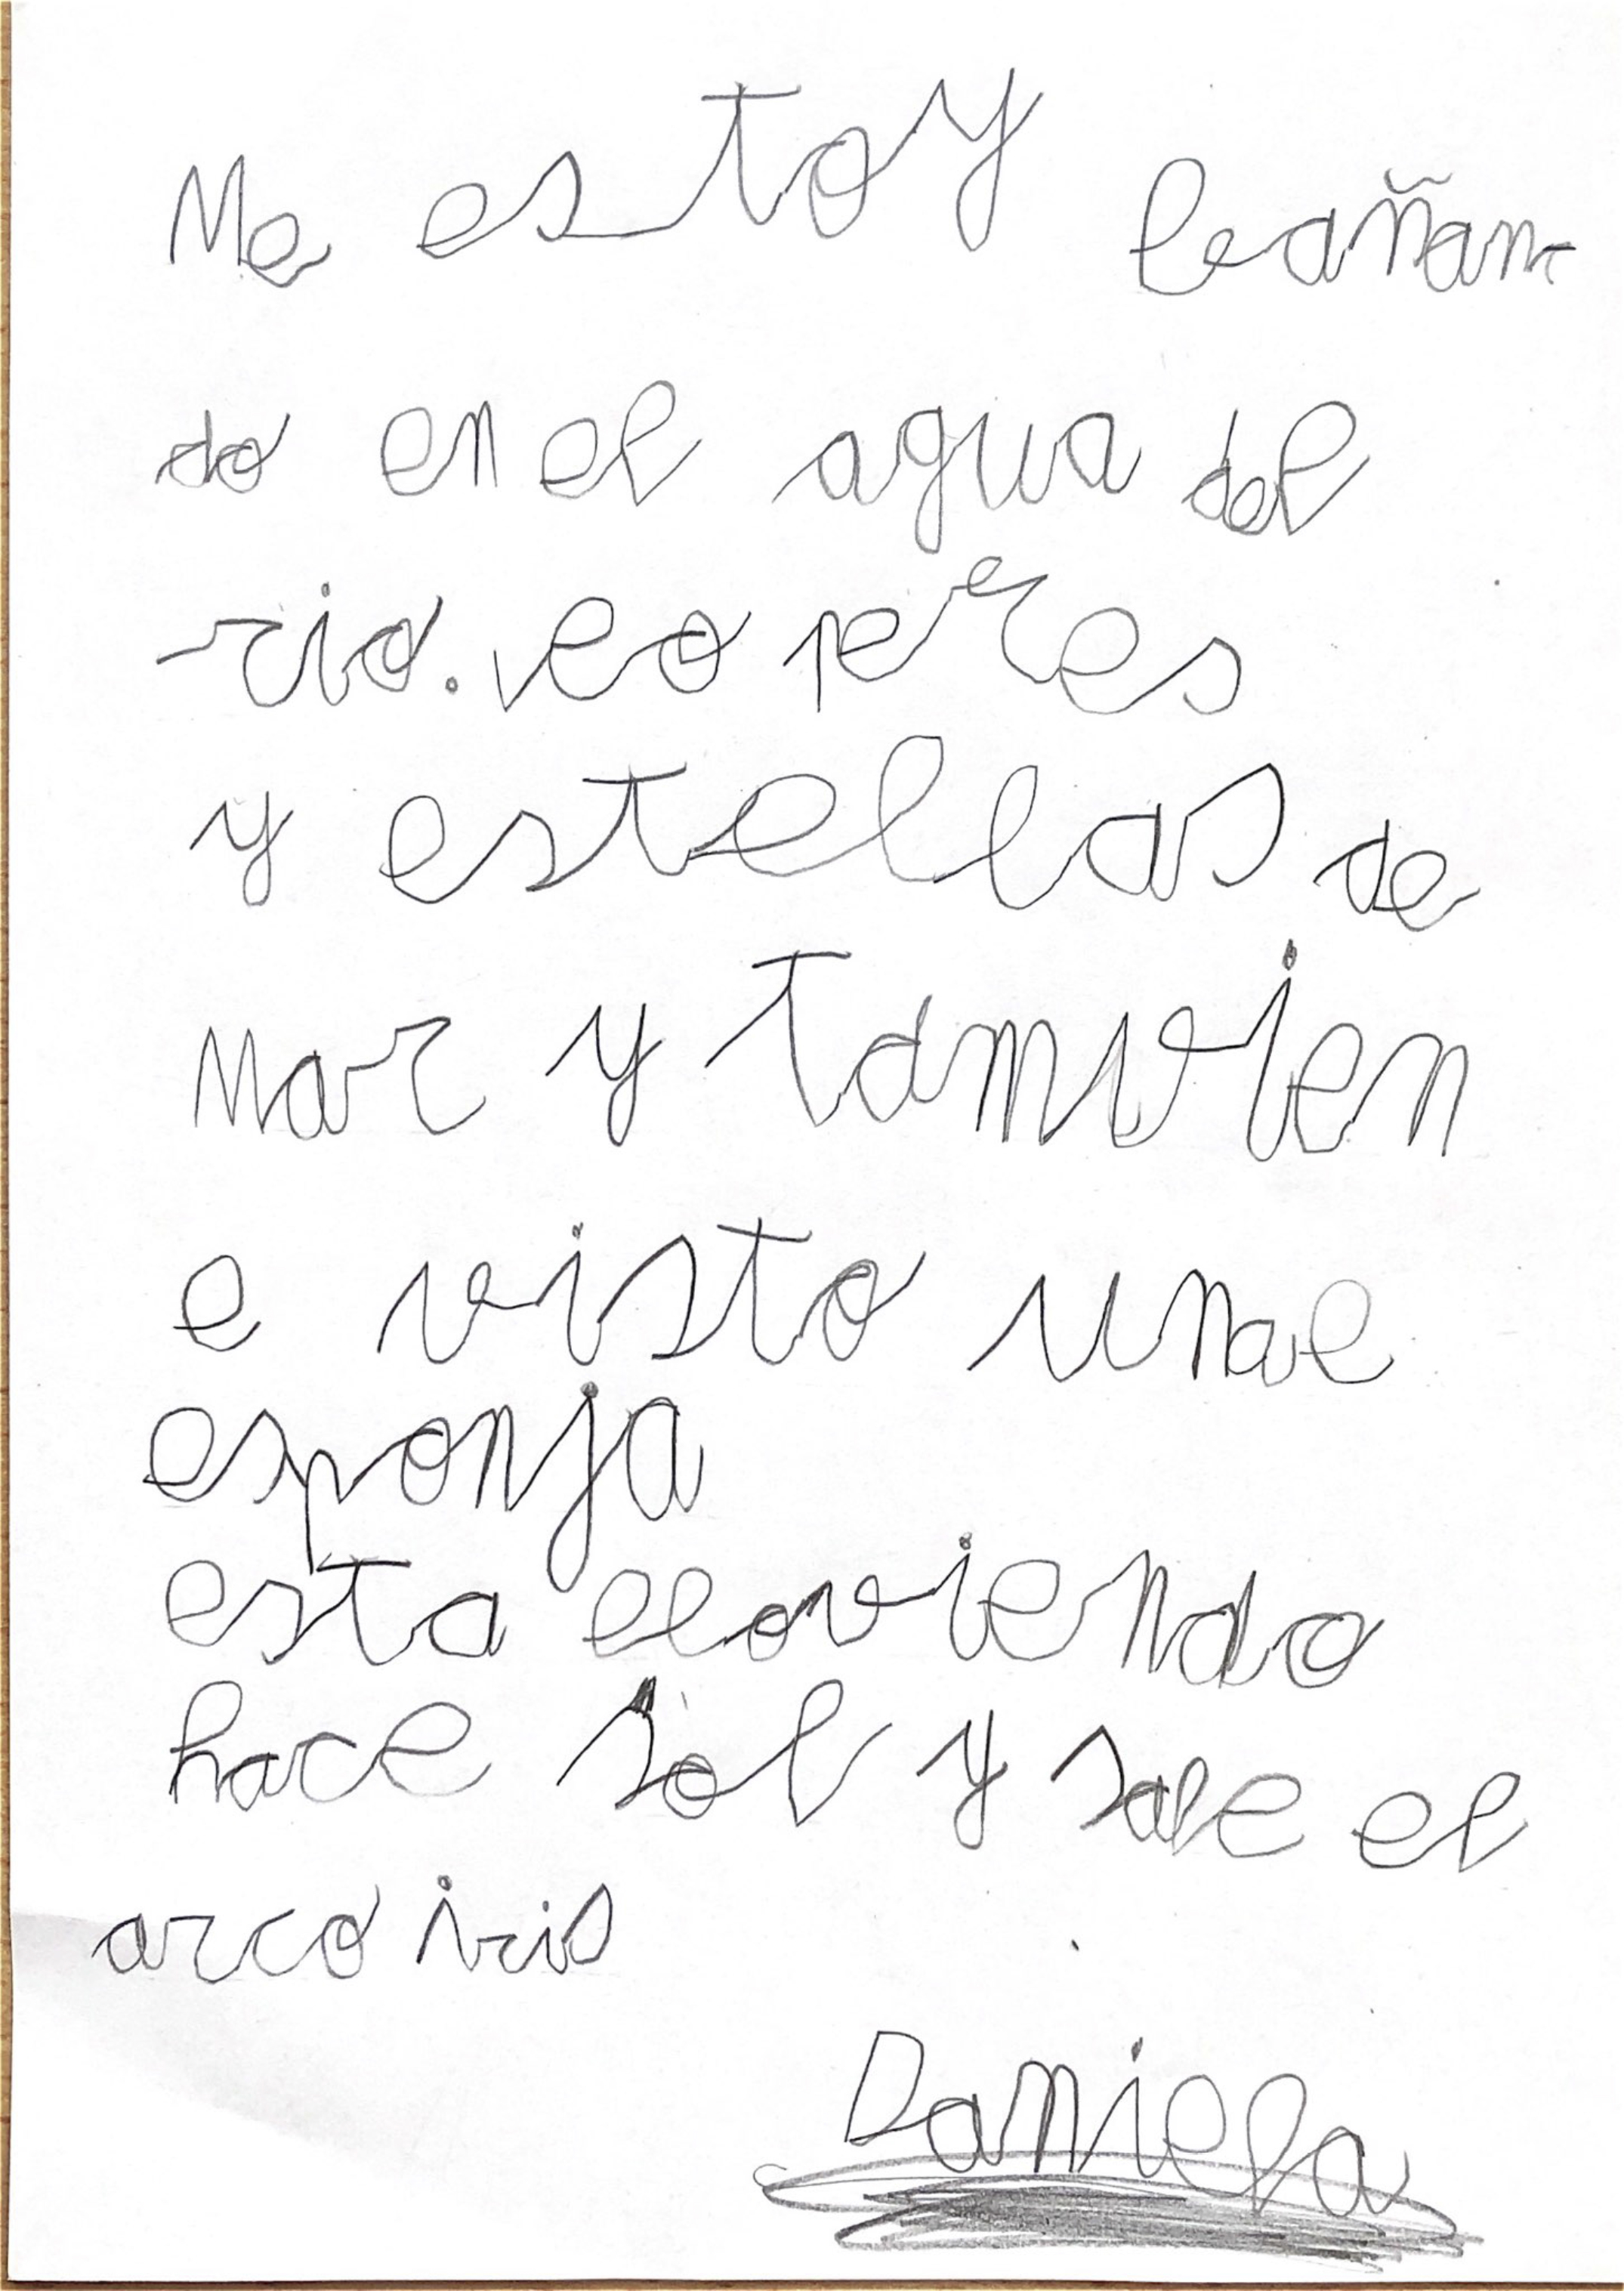 Me estoy bañan-
do en el agua del
rio. veo peces
y estellas de
Mar y tamvien
e visto una
esponja
esta lloviendo
hace sol y sale el
arco iris
Daniela